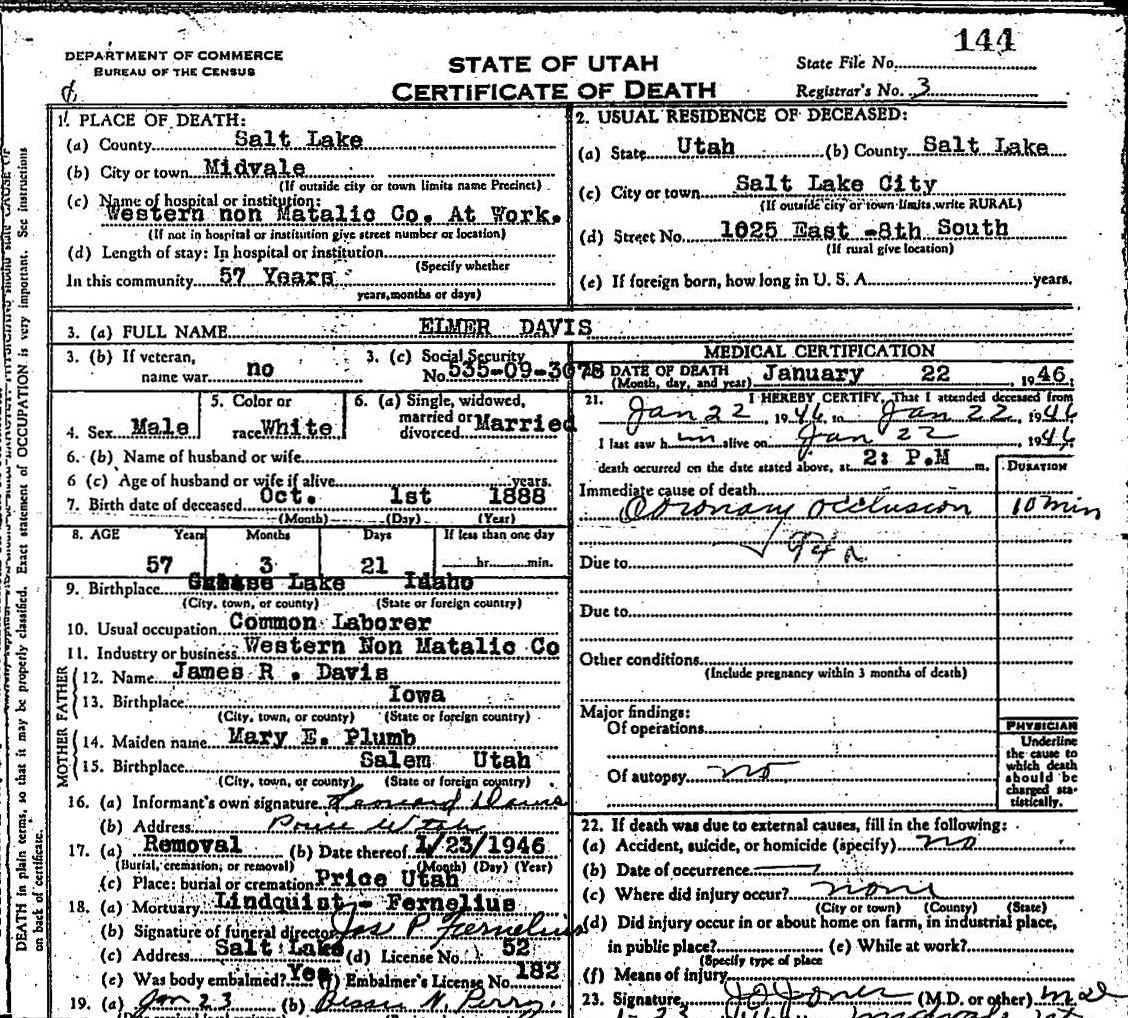 144
DEPARTMENT OF COMMERCE
BUREAU OF THE CENSUS
STATE OF UTAH
CERTIFICATE OF DEATH
State File No.
Registrar's No. 3
1. PLACE OF DEATH:
(a) County Salt Lake
(b) City or town Midvale
(If outside city or town limits name Precinct)
(c) Name of hospital or institution:
Western non Matalic Co. At Work.
(If not in hospital or institution give street number or location)
(d) Length of stay: In hospital or institution
(Specify whether
In this community 57 Years
years, months or days)
2. USUAL RESIDENCE OF DECEASED:
(a) State Utah (b) County Salt Lake
(c) City or town Salt Lake City
(If outside city or town limits, write RURAL)
(d) Street No. 1025 East -8th South
(If rural give location)
(e) If foreign born, how long in U. S. A. years.
3. (a) FULL NAME ELMER DAVIS
3. (b) If veteran, name war no
3. (c) Social Security
No. 535-09-3078
4. Sex Male
5. Color or
race White
6. (a) Single, widowed,
married or
divorced Married
6. (b) Name of husband or wife
6 (c) Age of husband or wife if alive years.
7. Birth date of deceased Oct. 1st 1888
(Month) (Day) (Year)
8. AGE Years Months Days If less than one day
57 3 21 hr. min.
9. Birthplace Lake Idaho
(City, town, or county) (State or foreign country)
10. Usual occupation Common Laborer
11. Industry or business Western Non Matalic Co
FATHER
12. Name James R . Davis
13. Birthplace Iowa
(City, town, or county) (State or foreign country)
MOTHER
14. Maiden name Mary E. Plumb
15. Birthplace Salem Utah
(City, town, or county) (State or foreign country)
16. (a) Informant's own signature Leonard Davis
(b) Address Price Utah
17. (a) Removal (b) Date thereof 1/23/1946
(Burial, cremation, or removal) (Month) (Day) (Year)
(c) Place: burial or cremation Price Utah
18. (a) Mortuary Lindquist - Fernelius
(b) Signature of funeral director Jos P Fernelius
(c) Address Salt Lake (d) License No. 52
(e) Was body embalmed? Yes (f) Embalmer's License No. 182
19. (a) Jan 23 (b) Bessie N. Perry.
MEDICAL CERTIFICATION
DATE OF DEATH January 22, 1946;
(Month, day, and year)
21. I HEREBY CERTIFY, That I attended deceased from
Jan 22, 1946 to Jan 22, 1946
I last saw him alive on Jan 22, 1946
death occurred on the date stated above, at 2: P.M m.
DURATION
Immediate cause of death
Coronary occlusion 10 min
94a
Due to
Due to
Other conditions
(Include pregnancy within 3 months of death)
Major findings:
Of operations
Of autopsy no
PHYSICIAN
Underline
the cause to
which death
should be
charged sta-
tistically.
22. If death was due to external causes, fill in the following:
(a) Accident, suicide, or homicide (specify) no
(b) Date of occurrence
(c) Where did injury occur? none
(City or town) (County) (State)
(d) Did injury occur in or about home on farm, in industrial place,
in public place? (e) While at work?
(Specify type of place
(f) Means of injury
23. Signature Jones (M.D. or other)
DEATH in plain terms, so that it may be properly classified. Exact statement of OCCUPATION is very important. See instructions
on back of certificate.